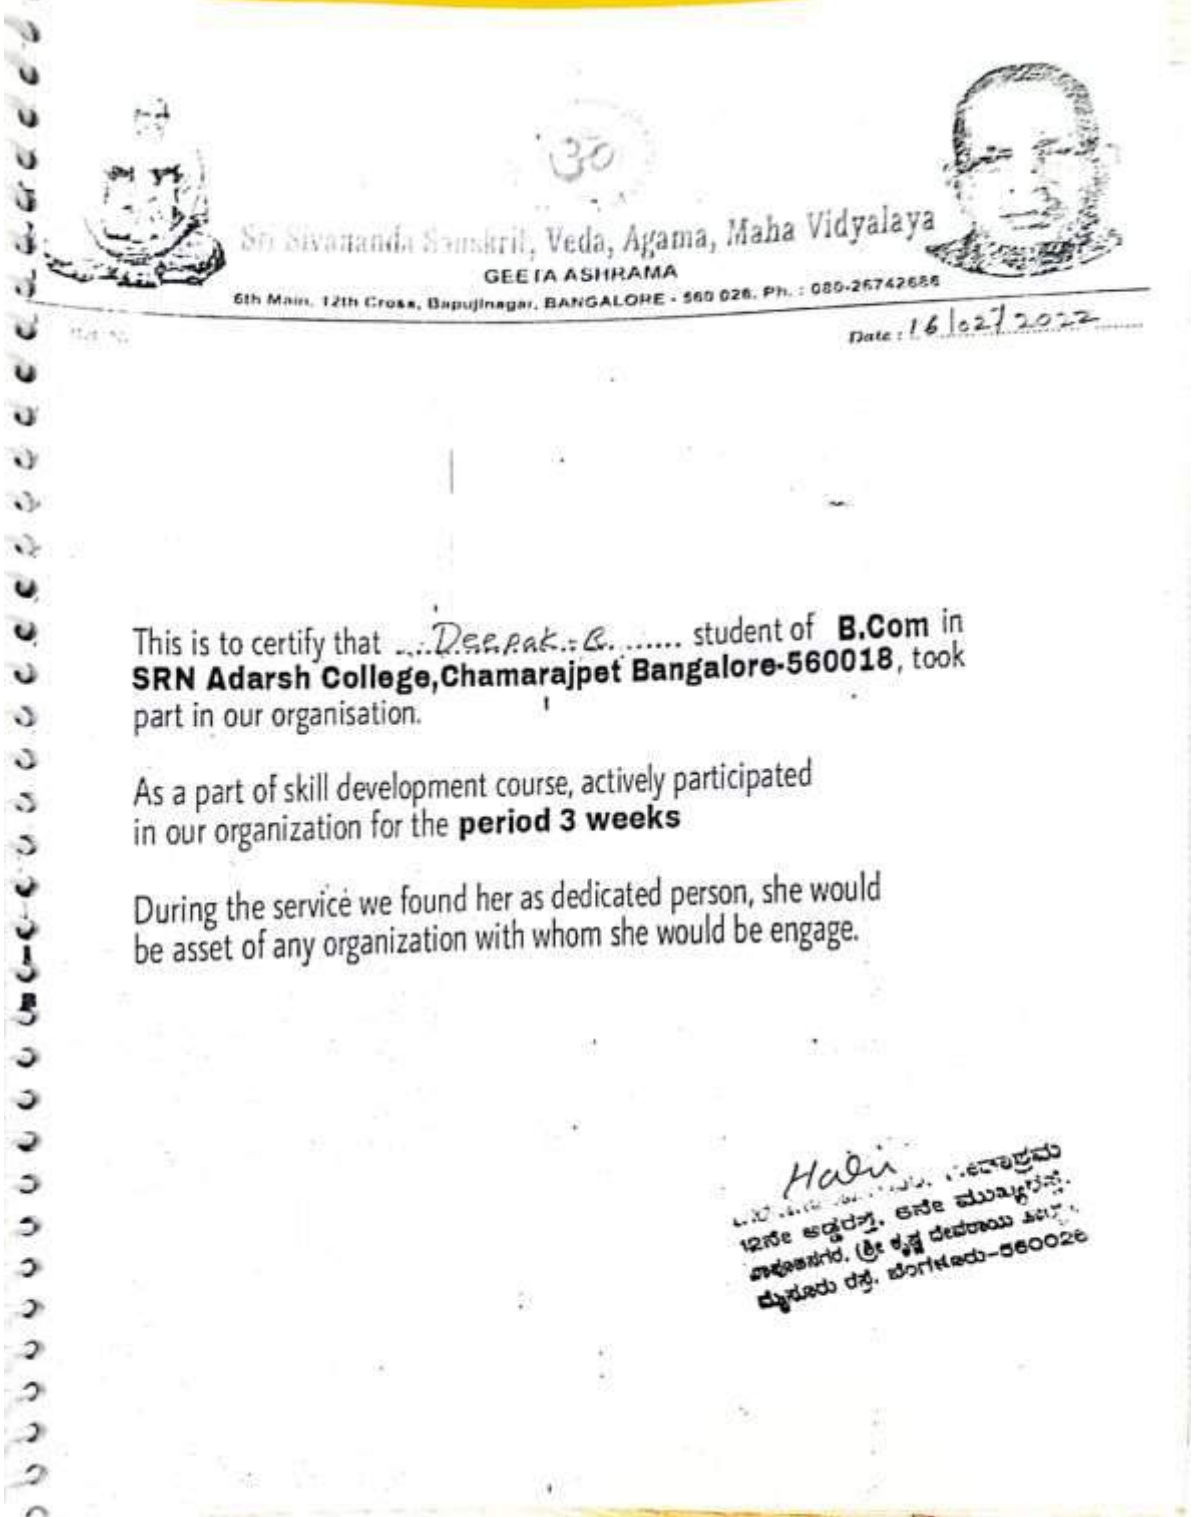 ॐ
Sri Sivananda Sanskrit, Veda, Agama, Maha Vidyalaya
GEETA ASHRAMA
6th Main, 12th Cross, Bapujinagar, BANGALORE - 560 026. Ph. : 080-26742686
Date : 16/02/2022
This is to certify that Deepak. student of B.Com in
SRN Adarsh College,Chamarajpet Bangalore-560018, took
part in our organisation.
As a part of skill development course, actively participated
in our organization for the period 3 weeks
During the service we found her as dedicated person, she would
be asset of any organization with whom she would be engage.
12ನೇ ಅಡ್ಡರಸ್ತೆ, 6ನೇ ಮುಖ್ಯರಸ್ತೆ,
ಬಾಪೂಜಿನಗರ, (ಶ್ರೀ ಕೃಷ್ಣ ದೇವರಾಯ
ಮೈಸೂರು ರಸ್ತೆ, ಬೆಂಗಳೂರು-560026